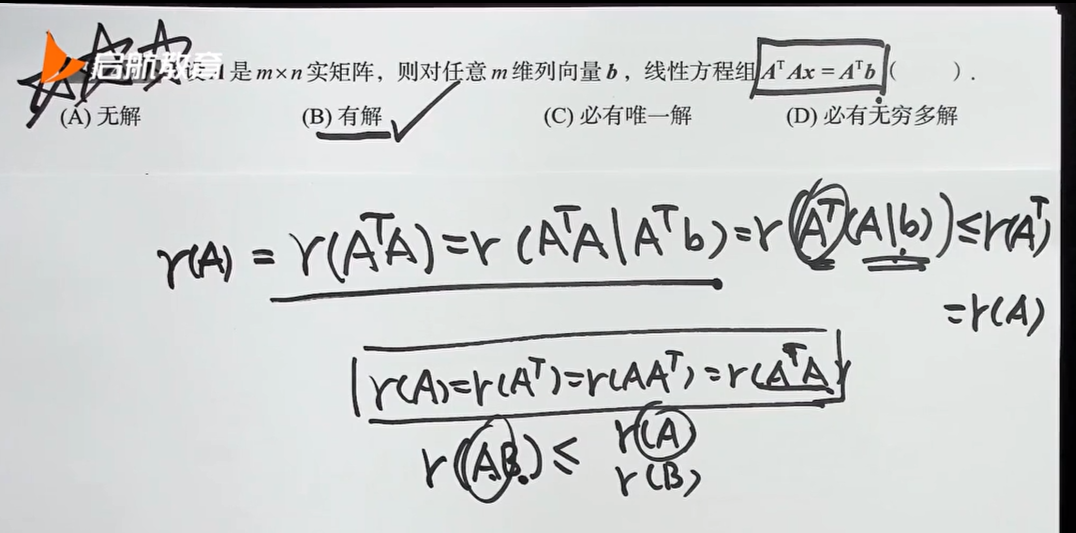 启航教育
A 是 m×n 实矩阵，则对任意 m 维列向量 b，线性方程组 AᵀAx = Aᵀb (　　).
(A) 无解　(B) 有解　(C) 必有唯一解　(D) 必有无穷多解
r(A) = r(AᵀA) = r(AᵀA|Aᵀb) = r(Aᵀ(A|b)) ≤ r(Aᵀ)
= r(A)
r(A) = r(Aᵀ) = r(AAᵀ) = r(AᵀA)
r(AB) ≤ r(A)
r(B)